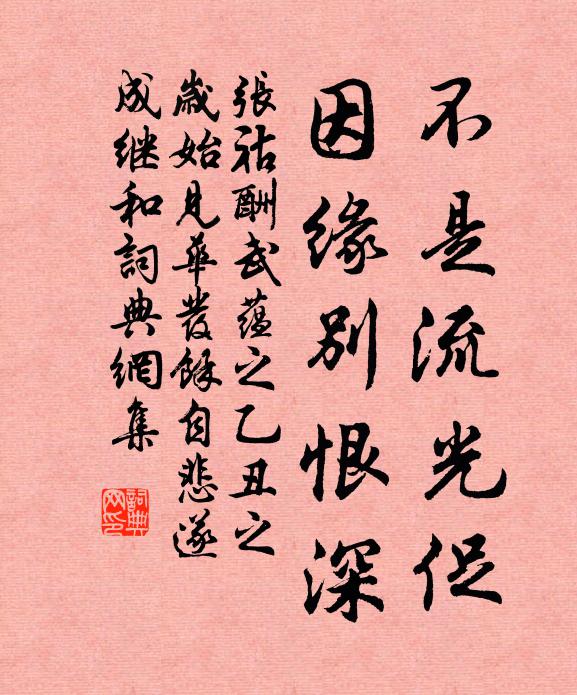 不是流光促
因緣別恨深
張祜酬武蘊之乙丑之
歲始見華發餘自悲遂
成继和詞典網集
詞典网印